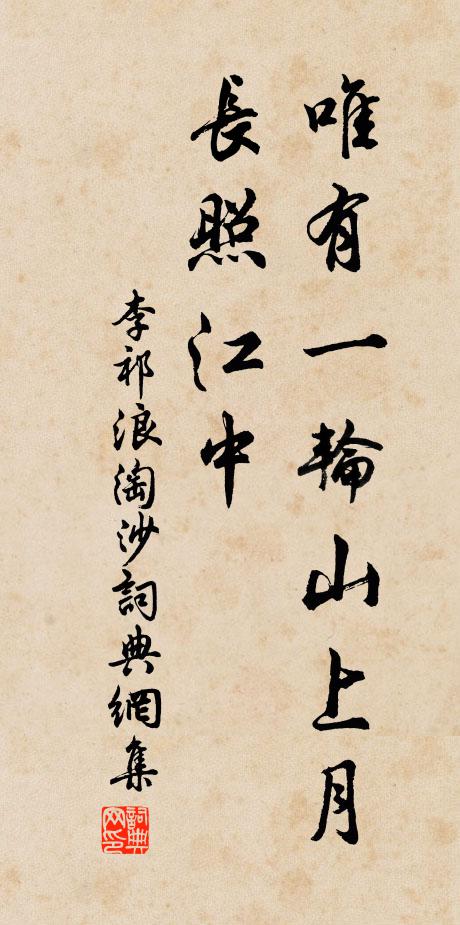 唯有一輪山上月
長照江中
李祁浪淘沙詞典網集
詞典网印